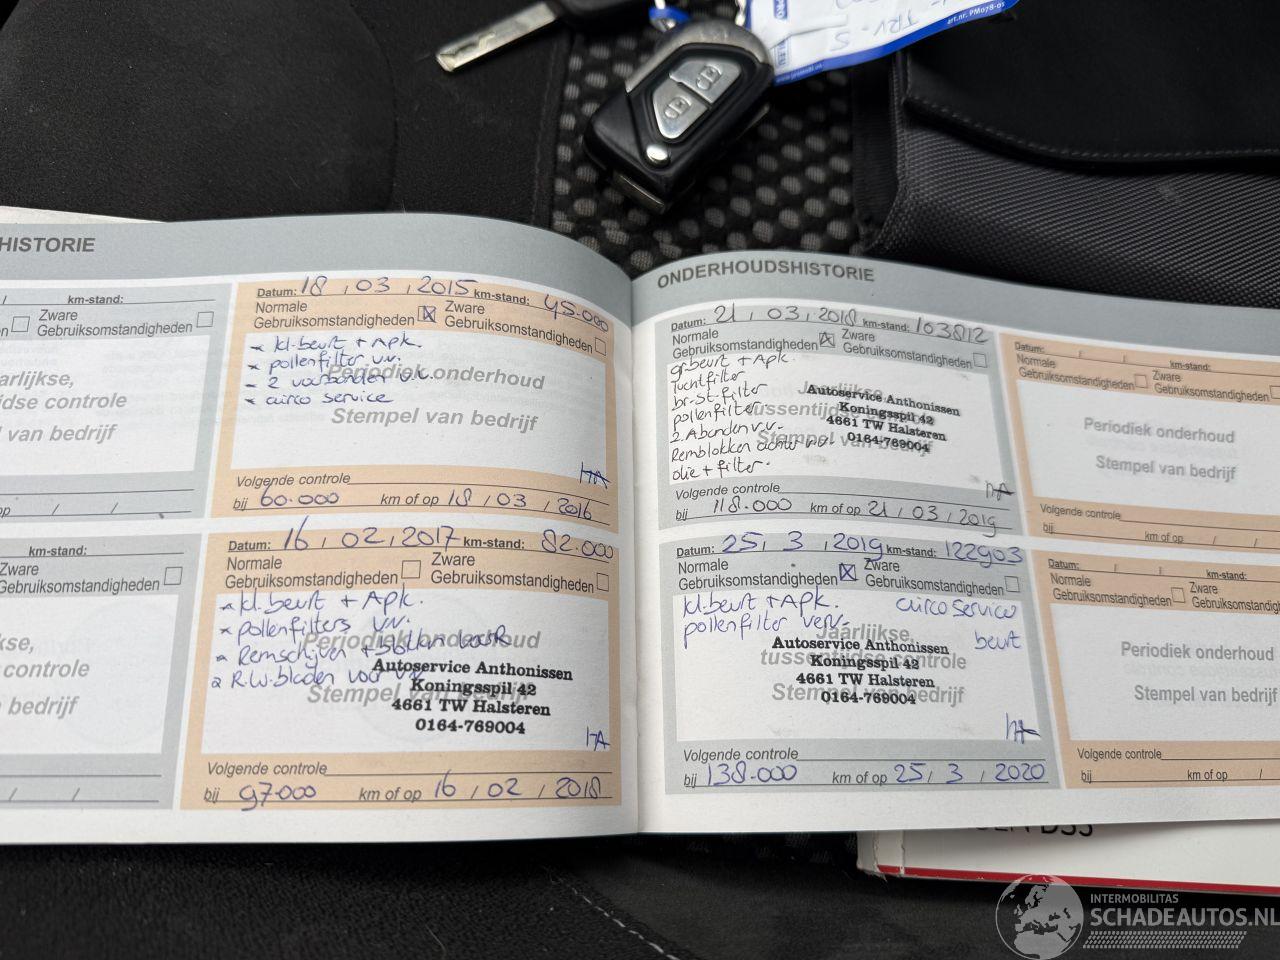 art.nr. PM078-01
HISTORIE
km-stand:
Zware
Gebruiksomstandigheden
arlijkse,
dse controle
van bedrijf
km-stand:
Zware
Gebruiksomstandigheden
kse,
controle
van bedrijf
Datum: 18 , 03 , 2015 km-stand: 45.000
Normale
Gebruiksomstandigheden
Zware
Gebruiksomstandigheden
* kl.beurt + Apk.
* pollenfilter v.v.
- 2 voorbanden v.v.
* airco service
Periodiek onderhoud
Stempel van bedrijf
HA
Volgende controle
bij 60.000 km of op 18 , 03 , 2016
Datum: 16 , 02 , 2017 km-stand: 82.000
Normale
Gebruiksomstandigheden
Zware
Gebruiksomstandigheden
* kl.beurt + Apk.
* pollenfilters v.v.
* Remschijven + blokken
R.W.bladen voor v.v.
Periodiek onderhoud
Stempel van bedrijf
Autoservice Anthonissen
Koningsspil 42
4661 TW Halsteren
0164-769004
HA
Volgende controle
bij 97.000 km of op 16 , 02 , 2018
ONDERHOUDSHISTORIE
Datum: 21 , 03 , 2018 km-stand: 103812
Normale
Gebruiksomstandigheden
Zware
Gebruiksomstandigheden
gr.beurt + Apk.
luchtfilter
br.st.filter
pollenfilter
2.Abanden v.v.
Remblokken achter v.v.
olie + filter.
Jaarlijkse,
tussentijdse controle
Stempel van bedrijf
Autoservice Anthonissen
Koningsspil 42
4661 TW Halsteren
0164-769004
HA
Volgende controle
bij 118.000 km of op 21 , 03 , 2019
Datum: 25 , 3 , 2019 km-stand: 122903
Normale
Gebruiksomstandigheden
Zware
Gebruiksomstandigheden
kl.beurt + Apk. airco service
pollenfilter verv. beurt
Jaarlijkse,
tussentijdse controle
Stempel van bedrijf
Autoservice Anthonissen
Koningsspil 42
4661 TW Halsteren
0164-769004
HA
Volgende controle
bij 138.000 km of op 25 , 3 , 2020
Datum: / / km-stand:
Normale
Gebruiksomstandigheden
Zware
Gebruiksomstandigheden
Periodiek onderhoud
Stempel van bedrijf
Volgende controle
bij km of op / /
Datum: / / km-stand:
Normale
Gebruiksomstandigheden
Zware
Gebruiksomstandigheden
Periodiek onderhoud
Stempel van bedrijf
Volgende controle
bij km of op /
INTERMOBILITAS
SCHADEAUTOS.NL